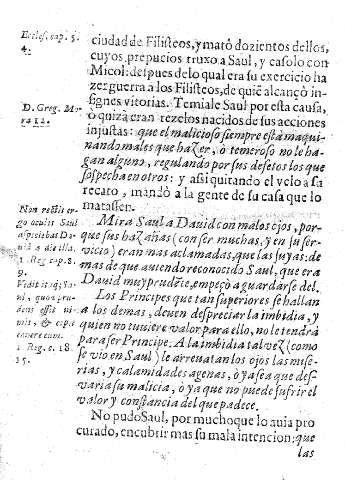 Eccles. cap. 5.
4.
ciudad de Filisteos, y mató dozientos dellos,
cuyos prepucios truxo a Saul, y casolo con
Micol: despues de lo qual era su exercicio ha
zer guerra a los Filisteos, de quiē alcançó in-
signes vitorias. Temiale Saul por esta causa,
ò quizá eran rezelos nacidos de sus acciones
injustas: que el malicioso siempre está maqui-
nando males que hazer, ò temeroso no le ha-
gan alguno, regulando por sus defetos los que
sospecha en otros: y assi quitando el velo a su
recato, mandó a la gente de su casa que lo
matassen.
D. Greg. Mo-
Mira Saul a Dauid con malos ojos, por-
que sus hazañas (con ser muchas, y en su ser-
vicio) eran mas aclamadas, que las suyas: de
mas de que auiendo reconocido Saul, que era
Dauid muy prudēte, empeçò a guardarse del.
Non rectis er-
go oculis Saul
aspiciebat Da-
uid a die illa.
1. Reg. cap. 8.
9.
Los Principes que tan superiores se hallan
a los demas, deuen despreciar la imbidia, y
quien no tuuiere valor para ello, no le tendrà
para ser Principe. A la imbidia tal vez (como
se vio en Saul) le arreuatan los ojos las mise-
rias, y calamidades agenas, ò ya sea que des-
varia su malicia, ò ya que no puede sufrir el
valor y constancia del que padece.
Vidit itaq; Sau
l, quod pru-
dens esset ni-
mis, & cepit
cauere eum.
1. Reg. c. 18.
15.
No pudo Saul, por mucho que lo auia pro
curado, encubrir mas su mala intencion; que
las